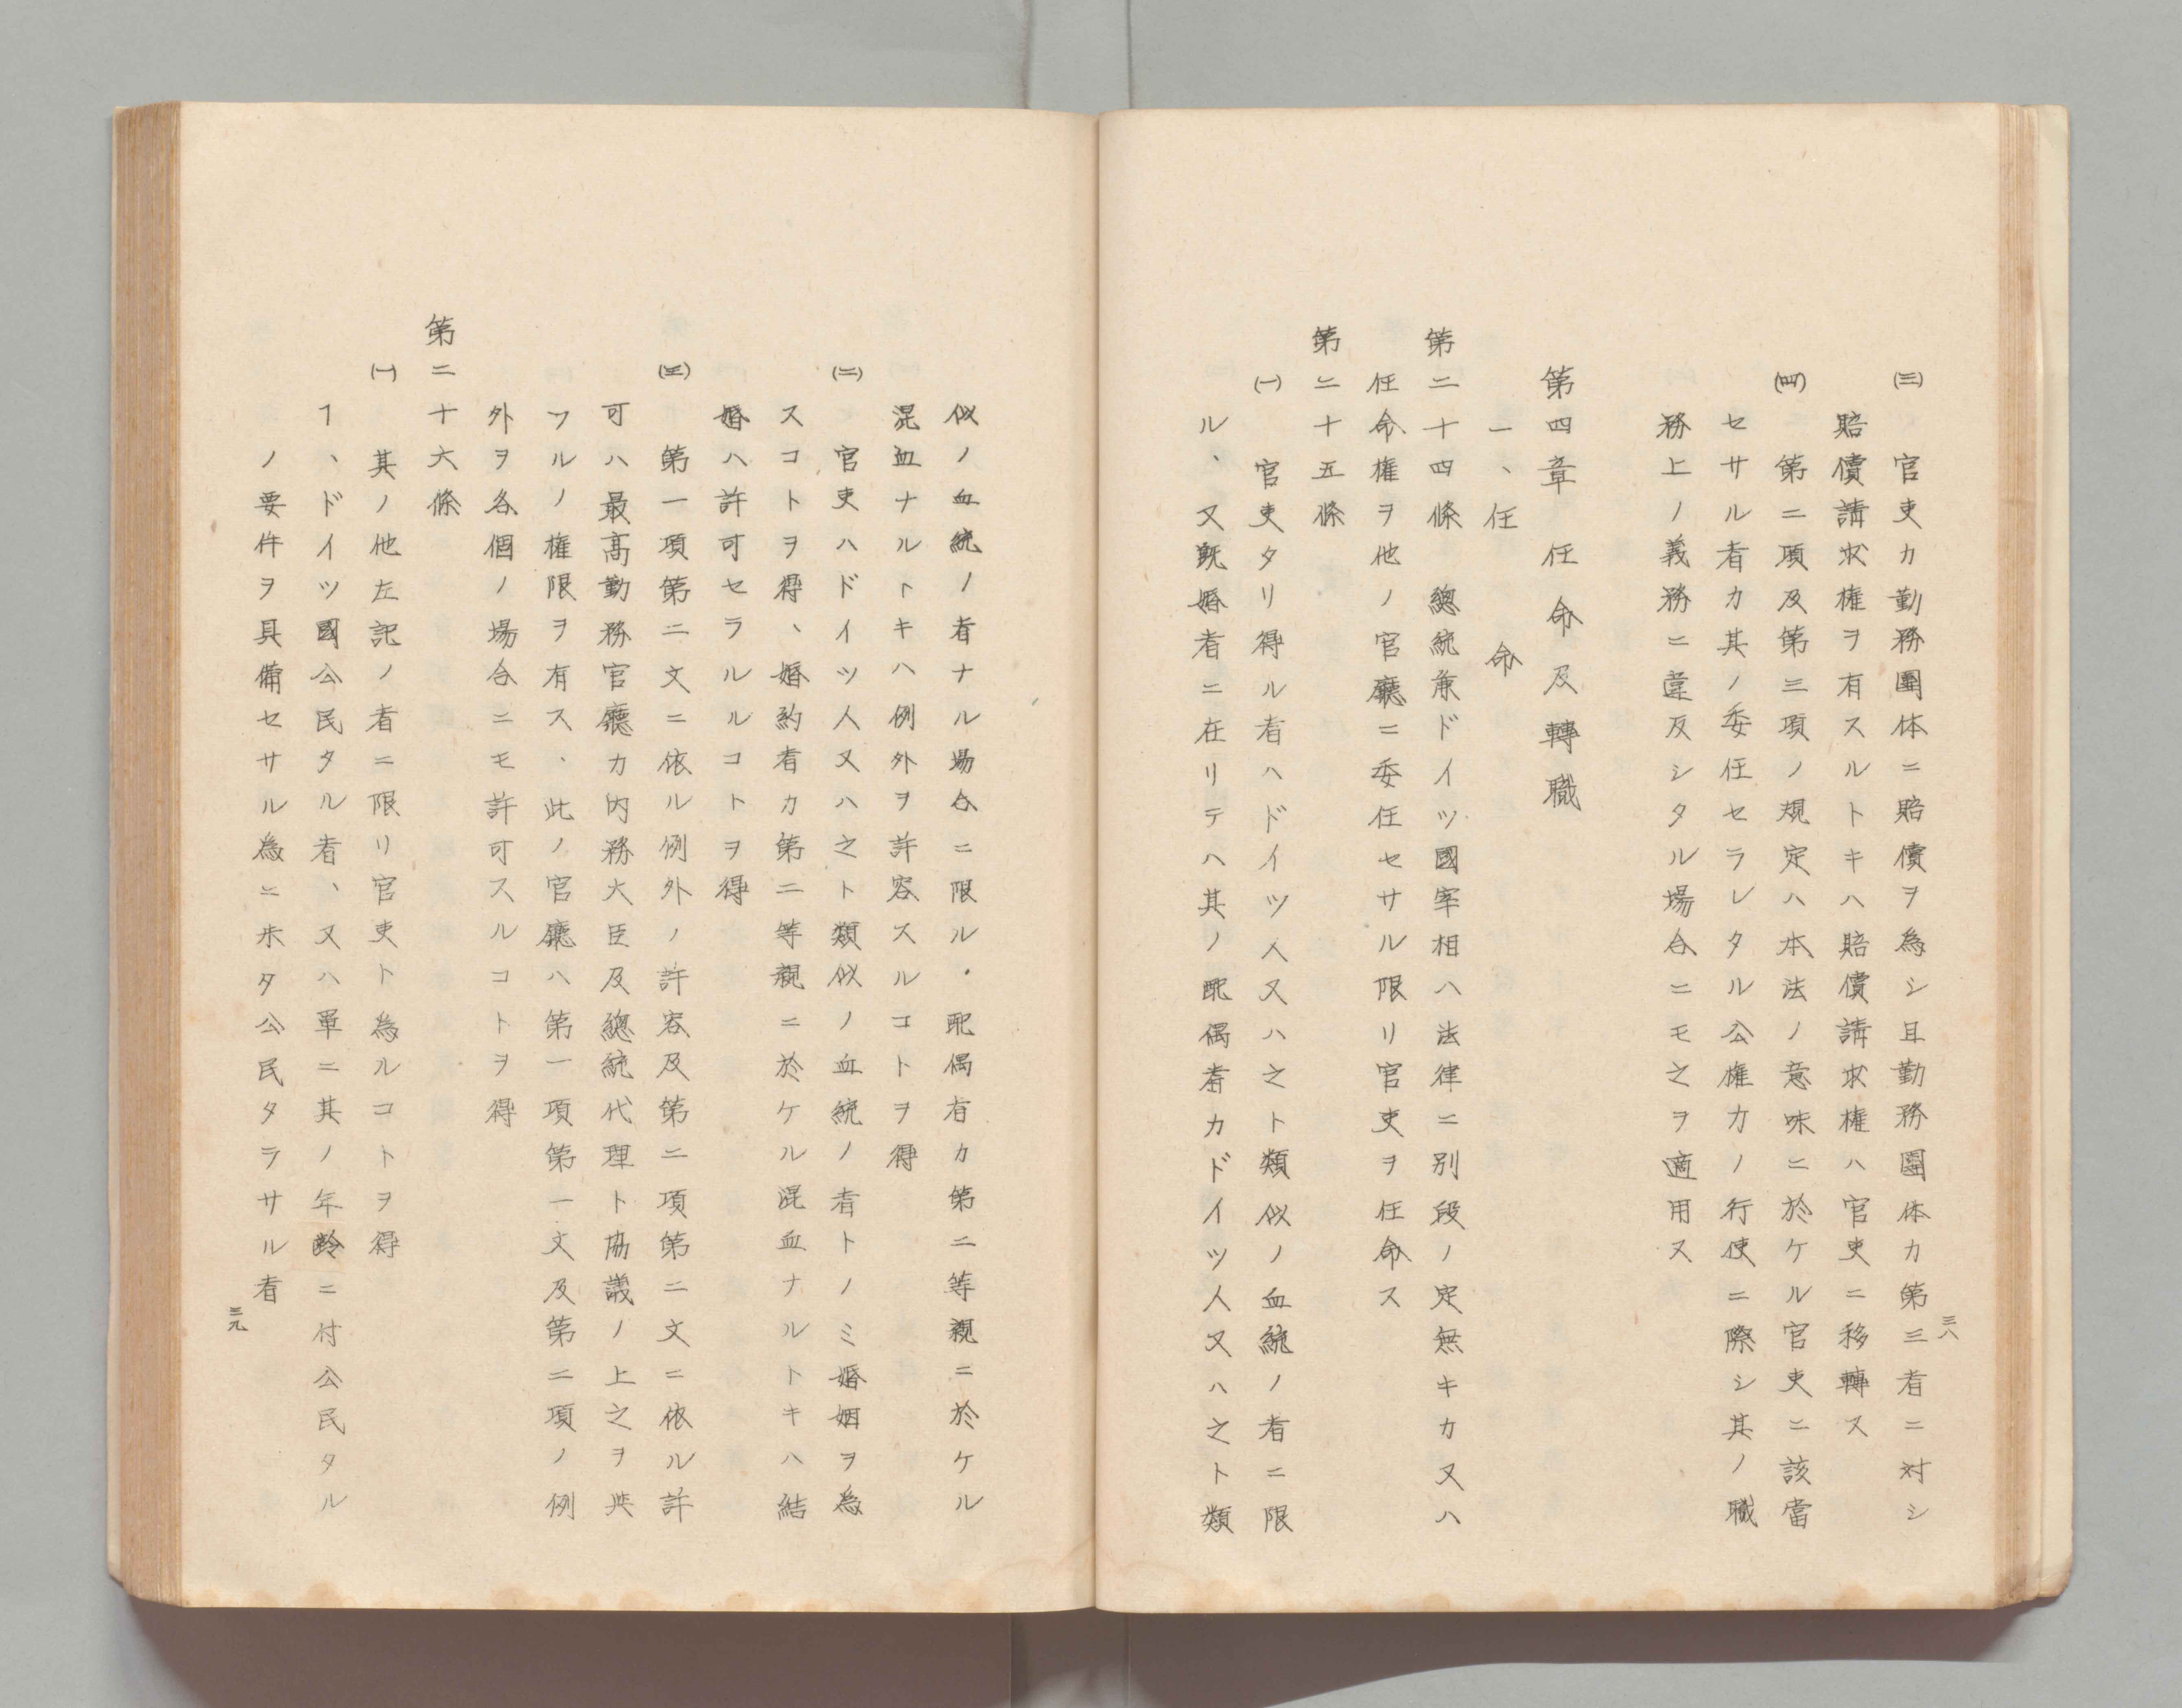 三八
(三) 官吏カ勤務團体ニ賠償ヲ為シ且勤務團体カ第三者ニ対シ
賠償請求権ヲ有スルトキハ賠償請求権ハ官吏ニ移轉ス
(四) 第二項及第三項ノ規定ハ本法ノ意味ニ於ケル官吏ニ該當
セサル者カ其ノ委任セラレタル公権力ノ行使ニ際シ其ノ職
務上ノ義務ニ違反シタル場合ニモ之ヲ適用ス
第四章 任命及轉職
一、任命
第二十四條 總統兼ドイツ國宰相ハ法律ニ別段ノ定無キカ又ハ
任命権ヲ他ノ官廳ニ委任セサル限リ官吏ヲ任命ス
第二十五條
(一) 官吏タリ得ル者ハドイツ人又ハ之ト類似ノ血統ノ者ニ限
ル、又既婚者ニ在リテハ其ノ配偶者カドイツ人又ハ之ト類
似ノ血統ノ者ナル場合ニ限ル・配偶者カ第二等親ニ於ケル
混血ナルトキハ例外ヲ許容スルコトヲ得
(二) 官吏ハドイツ人又ハ之ト類似ノ血統ノ者トノミ婚姻ヲ為
スコトヲ得、婚約者カ第二等親ニ於ケル混血ナルトキハ結
婚ハ許可セラルルコトヲ得
(三) 第一項第二文ニ依ル例外ノ許容及第二項第二文ニ依ル許
可ハ最高勤務官廳カ内務大臣及總統代理ト協議ノ上之ヲ與
フルノ権限ヲ有ス、此ノ官廳ハ第一項第一文及第二項ノ例
外ヲ各個ノ場合ニモ許可スルコトヲ得
第二十六條
(一) 其ノ他左記ノ者ニ限リ官吏ト為ルコトヲ得
1、ドイツ國公民タル者、又ハ單ニ其ノ年齡ニ付公民タル
ノ要件ヲ具備セサル為ニ未タ公民タラサル者
三九